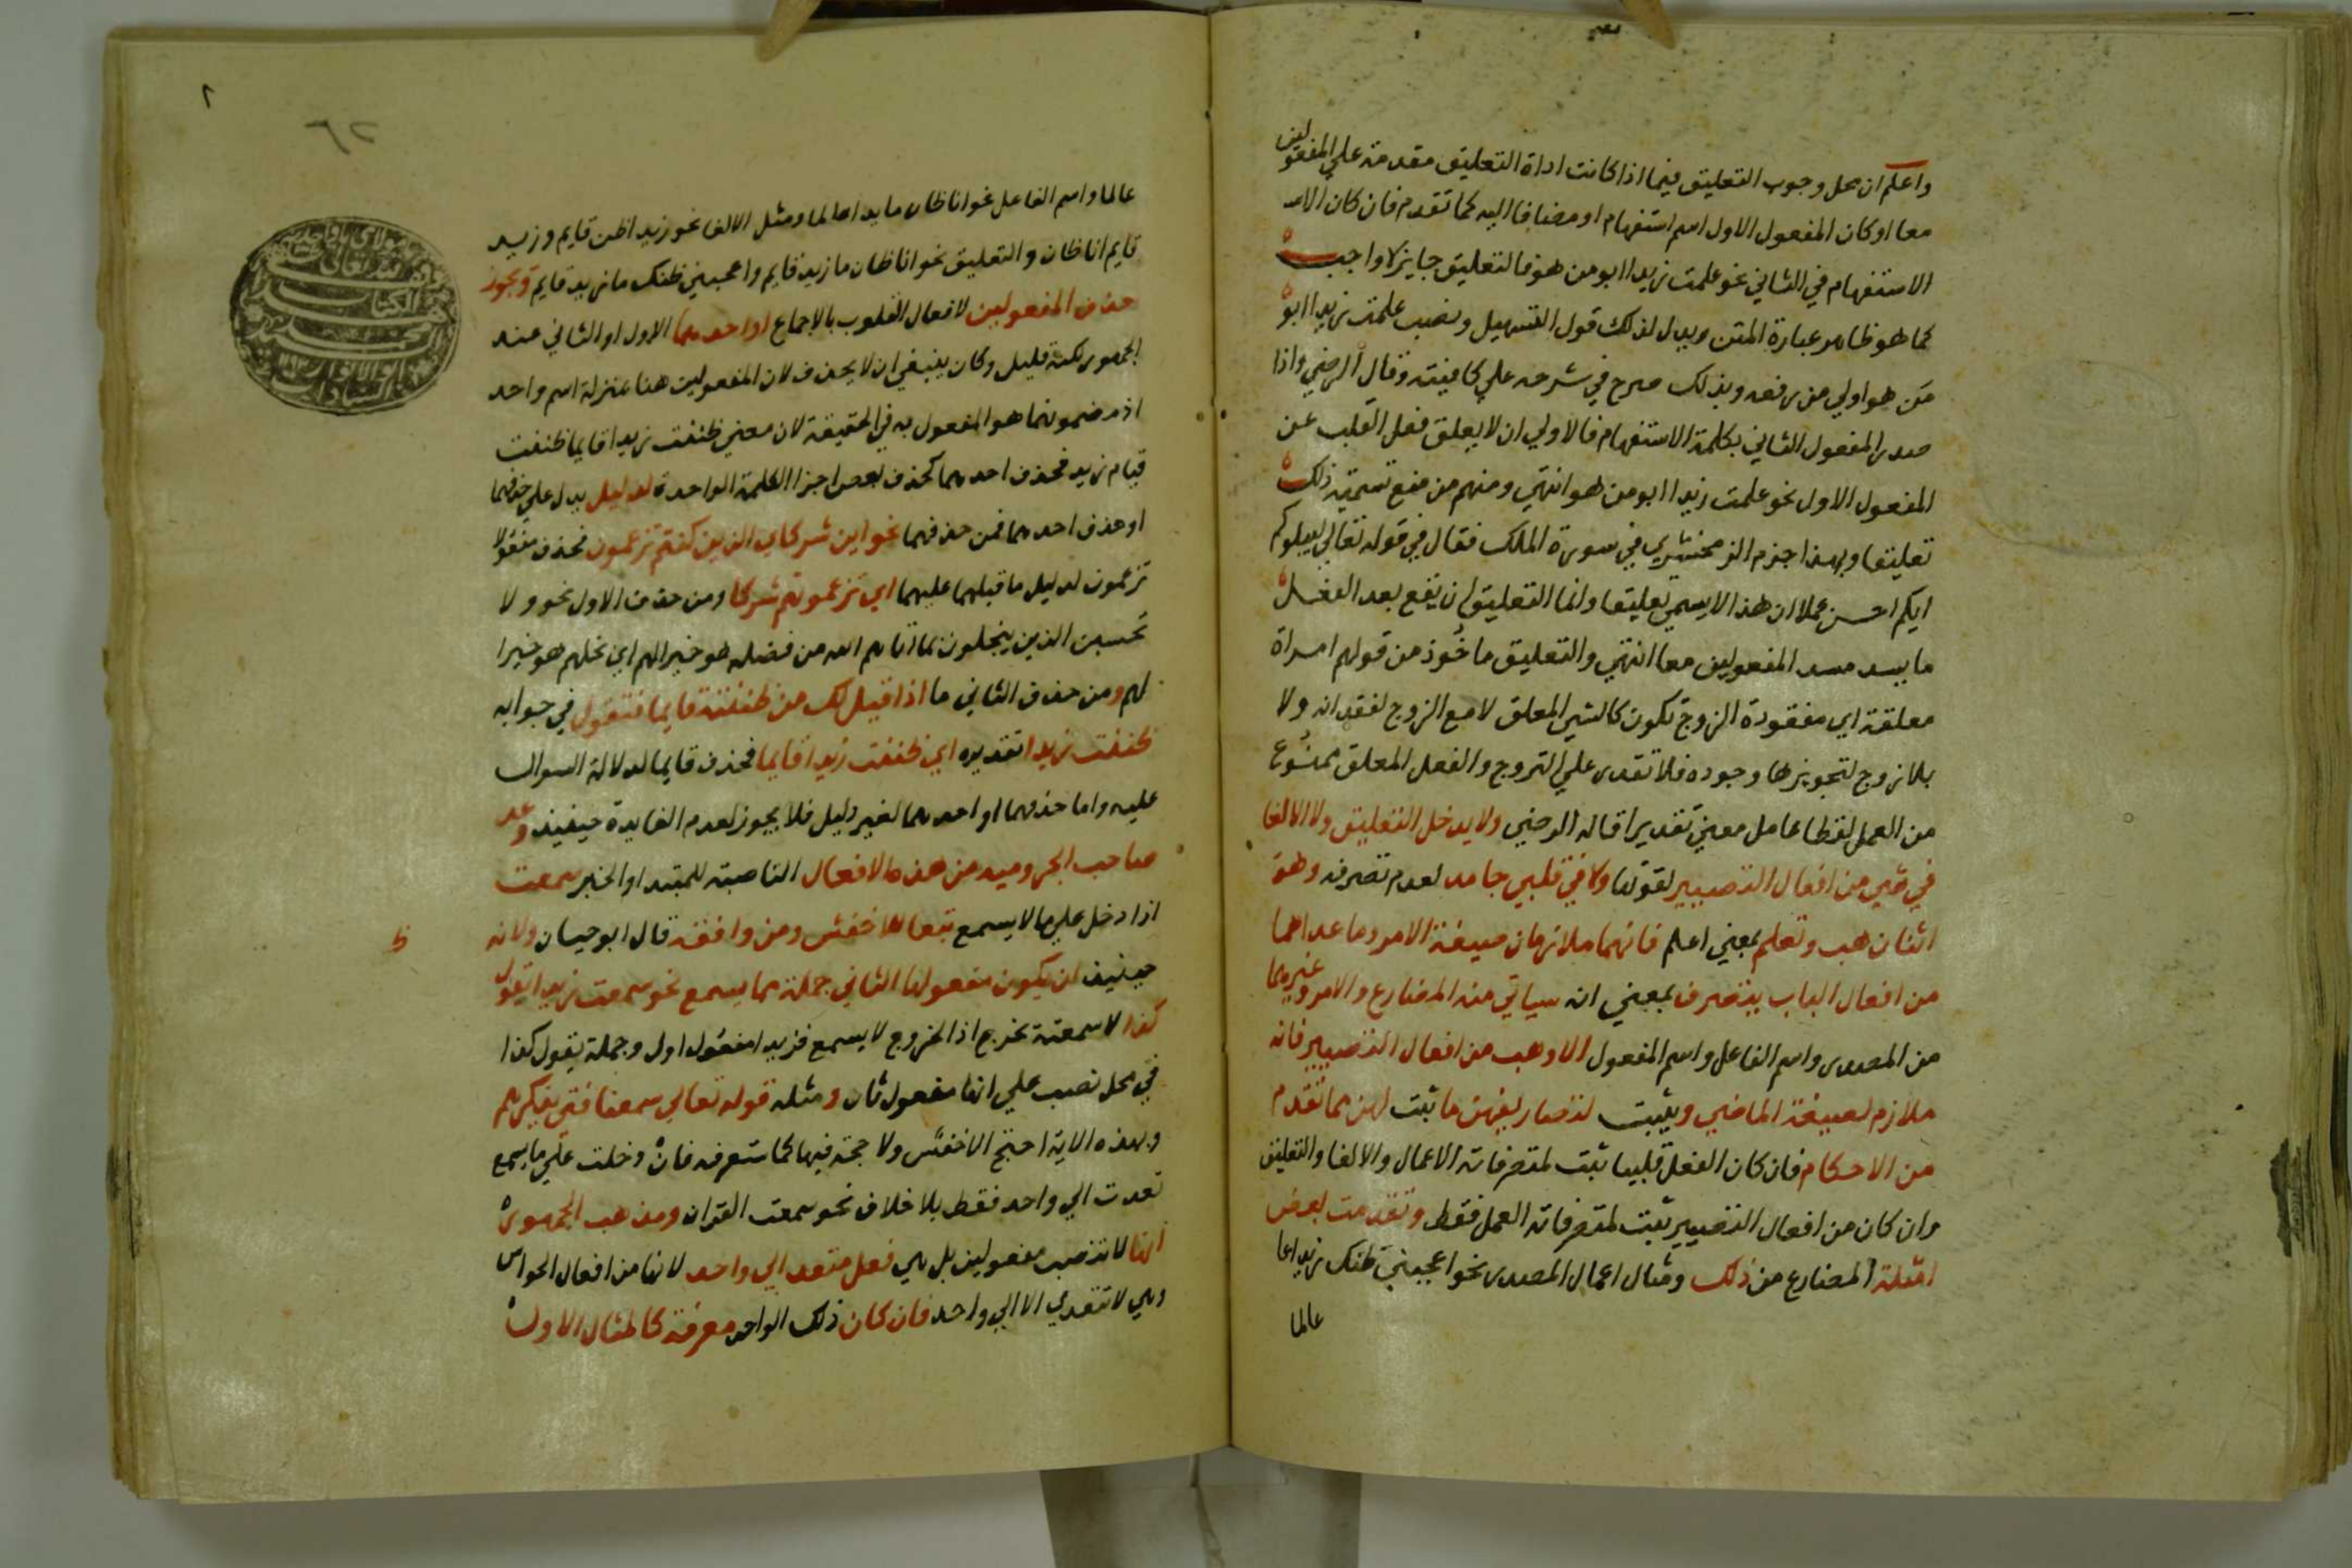 واعلم ان محل وجوب التعليق فيما اذا كانت اداة التعليق مقدمة علي المفعولين
معا او كان المفعول الاول اسم استفهام او مضافا اليه كما تقدم فان كان الاسم
الاستفهام في الثاني نحو علمت زيدا ابو من هو فالتعليق جايز لا واجب
كما هو ظاهر عبارة المتن ويدل لذلك قول التسهيل ونصب علمت زيدا ابو
من هو اولي من رفعه وبذلك صرح في شرحه علي كافيته وقال الرضي واذا
صدر المفعول الثاني بكلمة الاستفهام فالاولي ان لا يعلق فعل القلب عن
المفعول الاول نحو علمت زيدا ابو من هو انتهي ومنهم من منع تسمية ذلك
تعليقا وبهذا جزم الزمخشري في سورة الملك فقال في قوله تعالي ليبلوكم
ايكم احسن عملا ان هذا لا يسمي تعليقا وانما التعليق ان يقع بعد الفعل
ما يسد مسد المفعولين معا انتهي والتعليق ماخوذ من قولهم امراة
معلقة اي مفقودة الزوج تكون كالشي المعلق لا مع الزوج لفقدانه ولا
بلا زوج لتجويزها وجوده فلا تقدر علي التزوج والفعل المعلق ممنوع
من العمل لفظا عامل معني تقديرا قاله الرضي ولا يدخل التعليق ولا الالغا
في شي من افعال التصيير لقوتها ولا في قلبي جامد لعدم تصرفه وهو
اثنان هب وتعلم بمعني اعلم فانهما ملازمان صيغة الامر وما عداهما
من افعال الباب يتصرف بمعني انه سياتي منه المضارع والامر وغيرهما
من المصدر واسم الفاعل واسم المفعول الا وهب من افعال التصيير فانه
ملازم لصيغة الماضي ويثبت لتصاريفهن ما ثبت لهن مما تقدم
من الاحكام فان كان الفعل قلبيا ثبت لمتصرفاته الاعمال والالغا والتعليق
وان كان من افعال التصيير ثبت لمتصرفاته العمل فقط وتقدمت بعض
امثلة المضارع من ذلك ومثال اعمال المصدر نحو اعجبني ظنك زيدا
عالما
عالما واسم الفاعل نحو انا ظان ما يدا عالما ومثل الالغا نحو زيد اظن قايم وزيد
قايم انا ظان والتعليق نحو انا ظان ما زيد قايم واعجبني ظنك ما زيد قايم ويجوز
حذف المفعولين لافعال القلوب بالاجماع او احدهما الاول او الثاني عند
الجمهور لكنه قليل وكان ينبغي ان لا يحذف لان المفعولين هنا بمنزلة اسم واحد
اذ مضمونهما هو المفعول به في الحقيقة لان معني ظننت زيدا قايما ظننت
قيام زيد فحذف احدهما كحذف بعض اجزا الكلمة الواحدة لدليل يدل علي حذفهما
او حذف احدهما فمن حذفهما نحو اين شركاي الذين كنتم تزعمون فحذف مفعولا
تزعمون لدليل ما قبلهما عليهما اي تزعمونهم شركا ومن حذف الاول نحو ولا
تحسبن الذين يبخلون بما اتاهم الله من فضله هو خيرا لهم اي بخلهم هو خيرا
لهم ومن حذف الثاني ما اذا قيل لك من ظننته قايما فتقول في جوابه
ظننت زيدا تقديره اي ظننت زيدا قايما فحذف قايما لدلالة السوال
عليه واما حذفهما او احدهما لغير دليل فلا يجوز لعدم الفايدة حينيذ وعد
صاحب الجرومية من هذه الافعال الناصبة للمبتدا والخبر سمعت
اذا دخل علي ما لا يسمع تبعا للاخفش ومن وافقه قال ابو حيان ولانه
ظ
حينيذ ان يكون مفعولها الثاني جملة مما يسمع نحو سمعت زيدا يقول
كذا لا سمعته يخرج اذ الخروج لا يسمع فزيدا مفعول اول وجملة يقول كذا
في محل نصب علي انها مفعول ثان ومثله قوله تعالي سمعنا فتي يذكرهم
وبهذه الاية احتج الاخفش ولا حجة فيها كما ستعرفه فان دخلت علي ما يسمع
تعدت الي واحد فقط بلا خلاف نحو سمعت القران ومذهب الجمهور
انها لا تنصب مفعولين بل هي فعل متعد الي واحد لانها من افعال الحواس
وهي لا تتعدي الا الي واحد فان كان ذلك الواحد معرفة كالمثال الاول